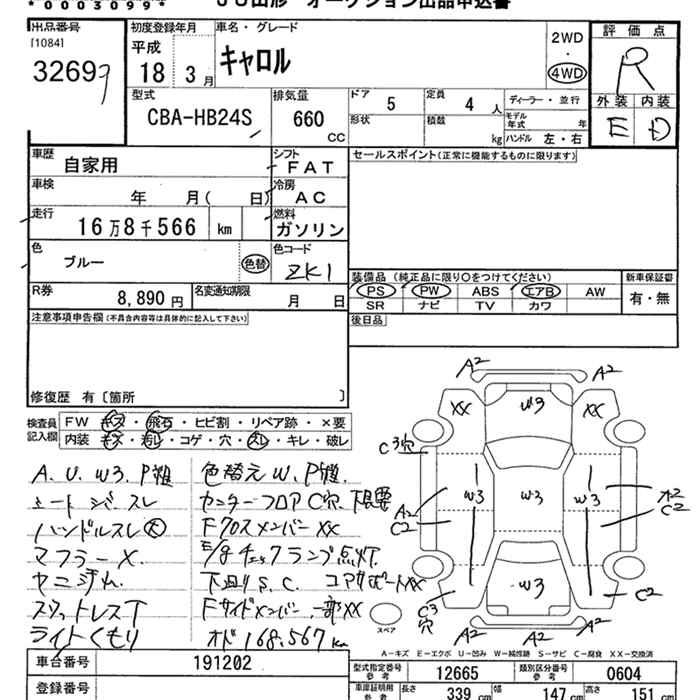 *0003099*
JU山形 オークション出品申込書
出品番号 初度登録年月 車名・グレード 2WD 評価点
[1084] 平成 キャロル ・ R
32699 18 3月 4WD 外装 内装
型式 排気量 ドア 5 定員 4人 ディーラー・並行 E D
CBA-HB24S 660 CC 形状 積載 kg モデル年式 年
ハンドル 左・右
車歴 自家用 シフト FAT セールスポイント(正常に機能するものに限ります)
車検 年 月( 日) 冷房 AC
走行 16万8千566 km 燃料 ガソリン
色 ブルー 色替 色コード ZK1
装備品 (純正品に限り○をつけてください) 新車保証書
R券 8,890円 名変通知期限 月 日 PS PW ABS エアB AW 有・無
SR ナビ TV カワ
注意事項申告欄(不具合内容等は具体的に記入して下さい) 後日品
修復歴 有〔箇所 〕
検査員記入欄 FW キズ・飛石・ヒビ割・リペア跡・×要
内装 キズ・汚レ・コゲ・穴・スレ・キレ・破レ
A.U.W3.P粗 色替えW.P粗
シートシミ・スレ センターフロアC穴.下根要
ハンドルスレ大 FクロスメンバーXX
マフラーX E/gチェックランプ点灯
ヤニ汚れ 下廻りS.C. コアサポートXX
スロットレスT Fサイドメンバー一部XX
ライトくもり オド168,567km
A2 A2
XX W3 XX
C3穴
A2 C2 W3 W3 W3 A2 C2
W3 C2
C3穴
A2 A2
スペア
A-キズ E-エクボ U-凹み W-補修跡 S-サビ C-腐食 XX-交換済
車台番号 191202 型式指定番号 参考 12665 類別区分番号 参考 0604
登録番号 車庫証明用 参考 長さ 339cm 幅 147cm 高さ 151cm